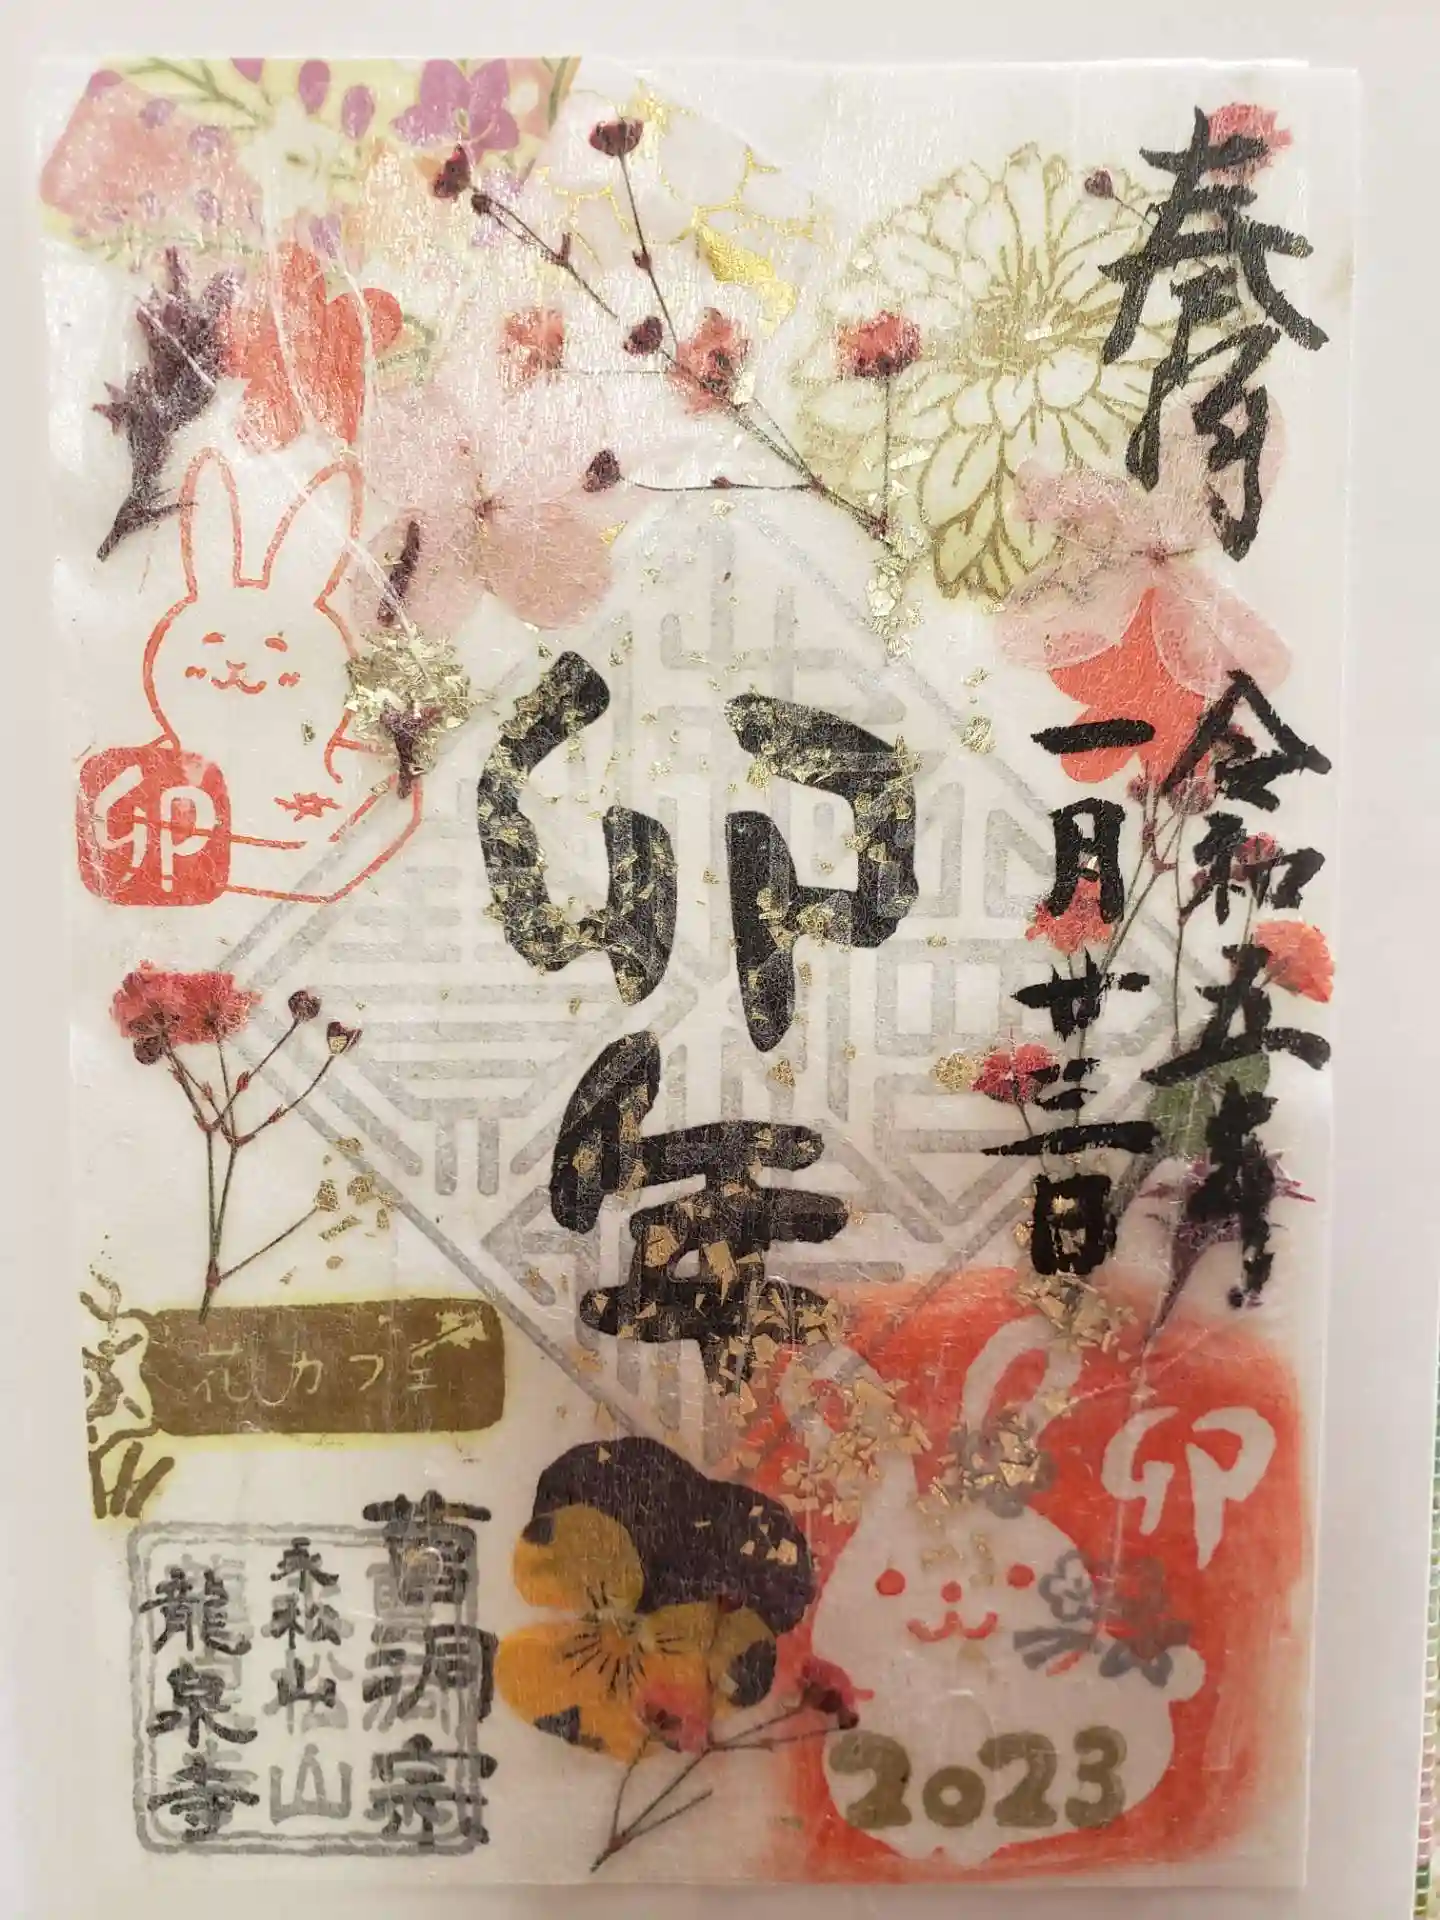 春月
令和五年
一月廿三日
卯年
卯
花カフェ
卯
2023
曹洞宗
永松山
龍泉寺